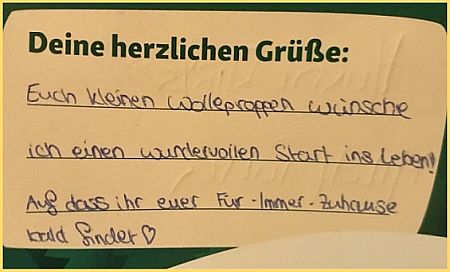 Deine herzlichen Grüße:
Euch kleinen Wolleproppen wünsche
ich einen wundervollen Start ins Leben!
Auf dass ihr euer Für-Immer-Zuhause
bald findet ♡